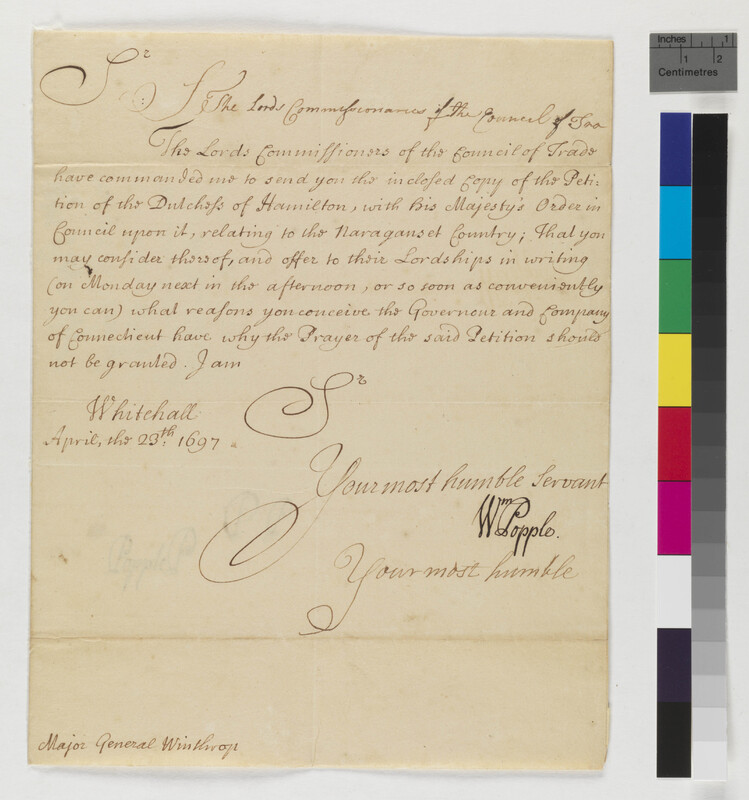 Sr
The Lords Commissionaries of the Council of Tra
The Lords Commissioners of the Council of Trade
have commanded me to send you the inclosed Copy of the Peti-
tion of the Dutchess of Hamilton, with his Majesty's Order in
Council upon it, relating to the Naraganset Country; That you
may consider thereof, and offer to their Lordships in writing
(on Monday next in the afternoon, or so soon as conveniently
you can) what reasons you conceive the Governour and Company
of Connecticut have why the Prayer of the said Petition should
not be granted. I am
Sr
Whitehall
April, the 23th: 1697
Your most humble Servant
Wm Popple.
Your most humble
Major General Winthrop
Inches 1
1 2
Centimetres